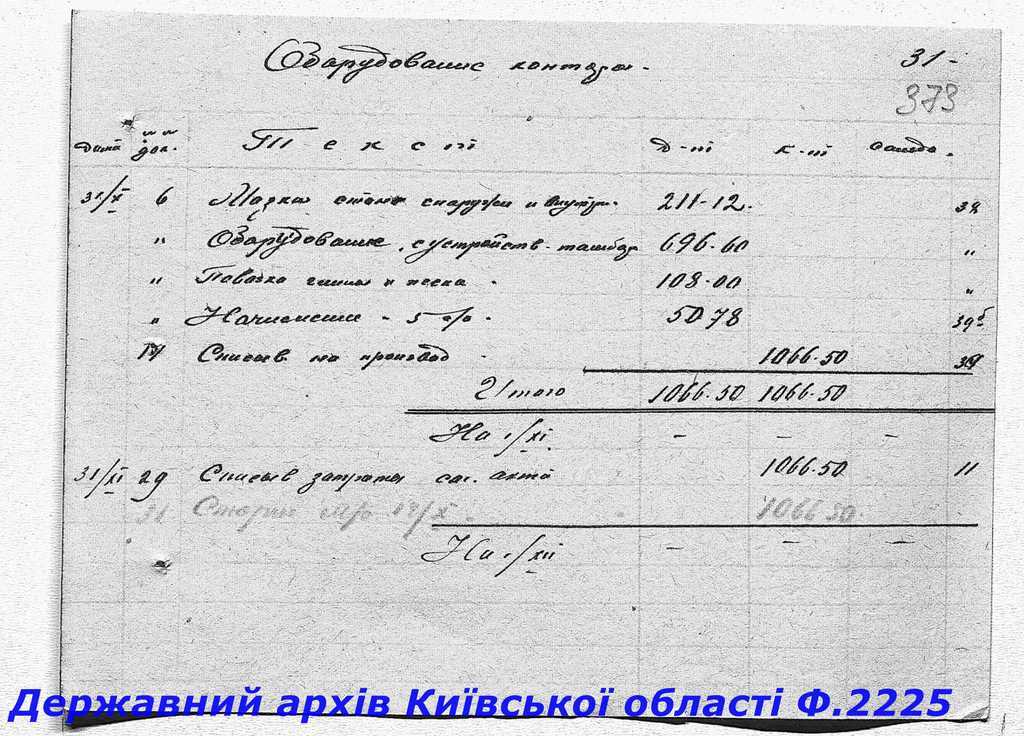 Оборудование конторы. 31-
373
Дата №№ док. Текст Д-т К-т Сальдо.
31/X 6 стен снаружи и внутри. 211-12. 38
" Оборудование, с устройств. тамбор 696-60 "
" глины и песка. 108-00 "
" Начисления - 5 %. 50 78 39б
17 Списыв. на производ 1066-50
Итого 1066-50 1066-50
На 1/XI - - -
31/XI 29 Списыв затраты сог. акта 1066-50 11
31 Сторно 17/X. 1066 50.
На 1/XII - - -
Державний архів Київської області Ф.2225